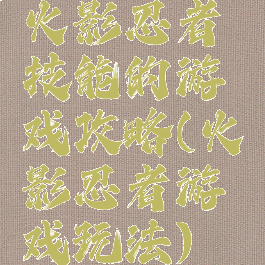 火影忍者
技能的游
戏攻略(火
影忍者游
戏玩法)